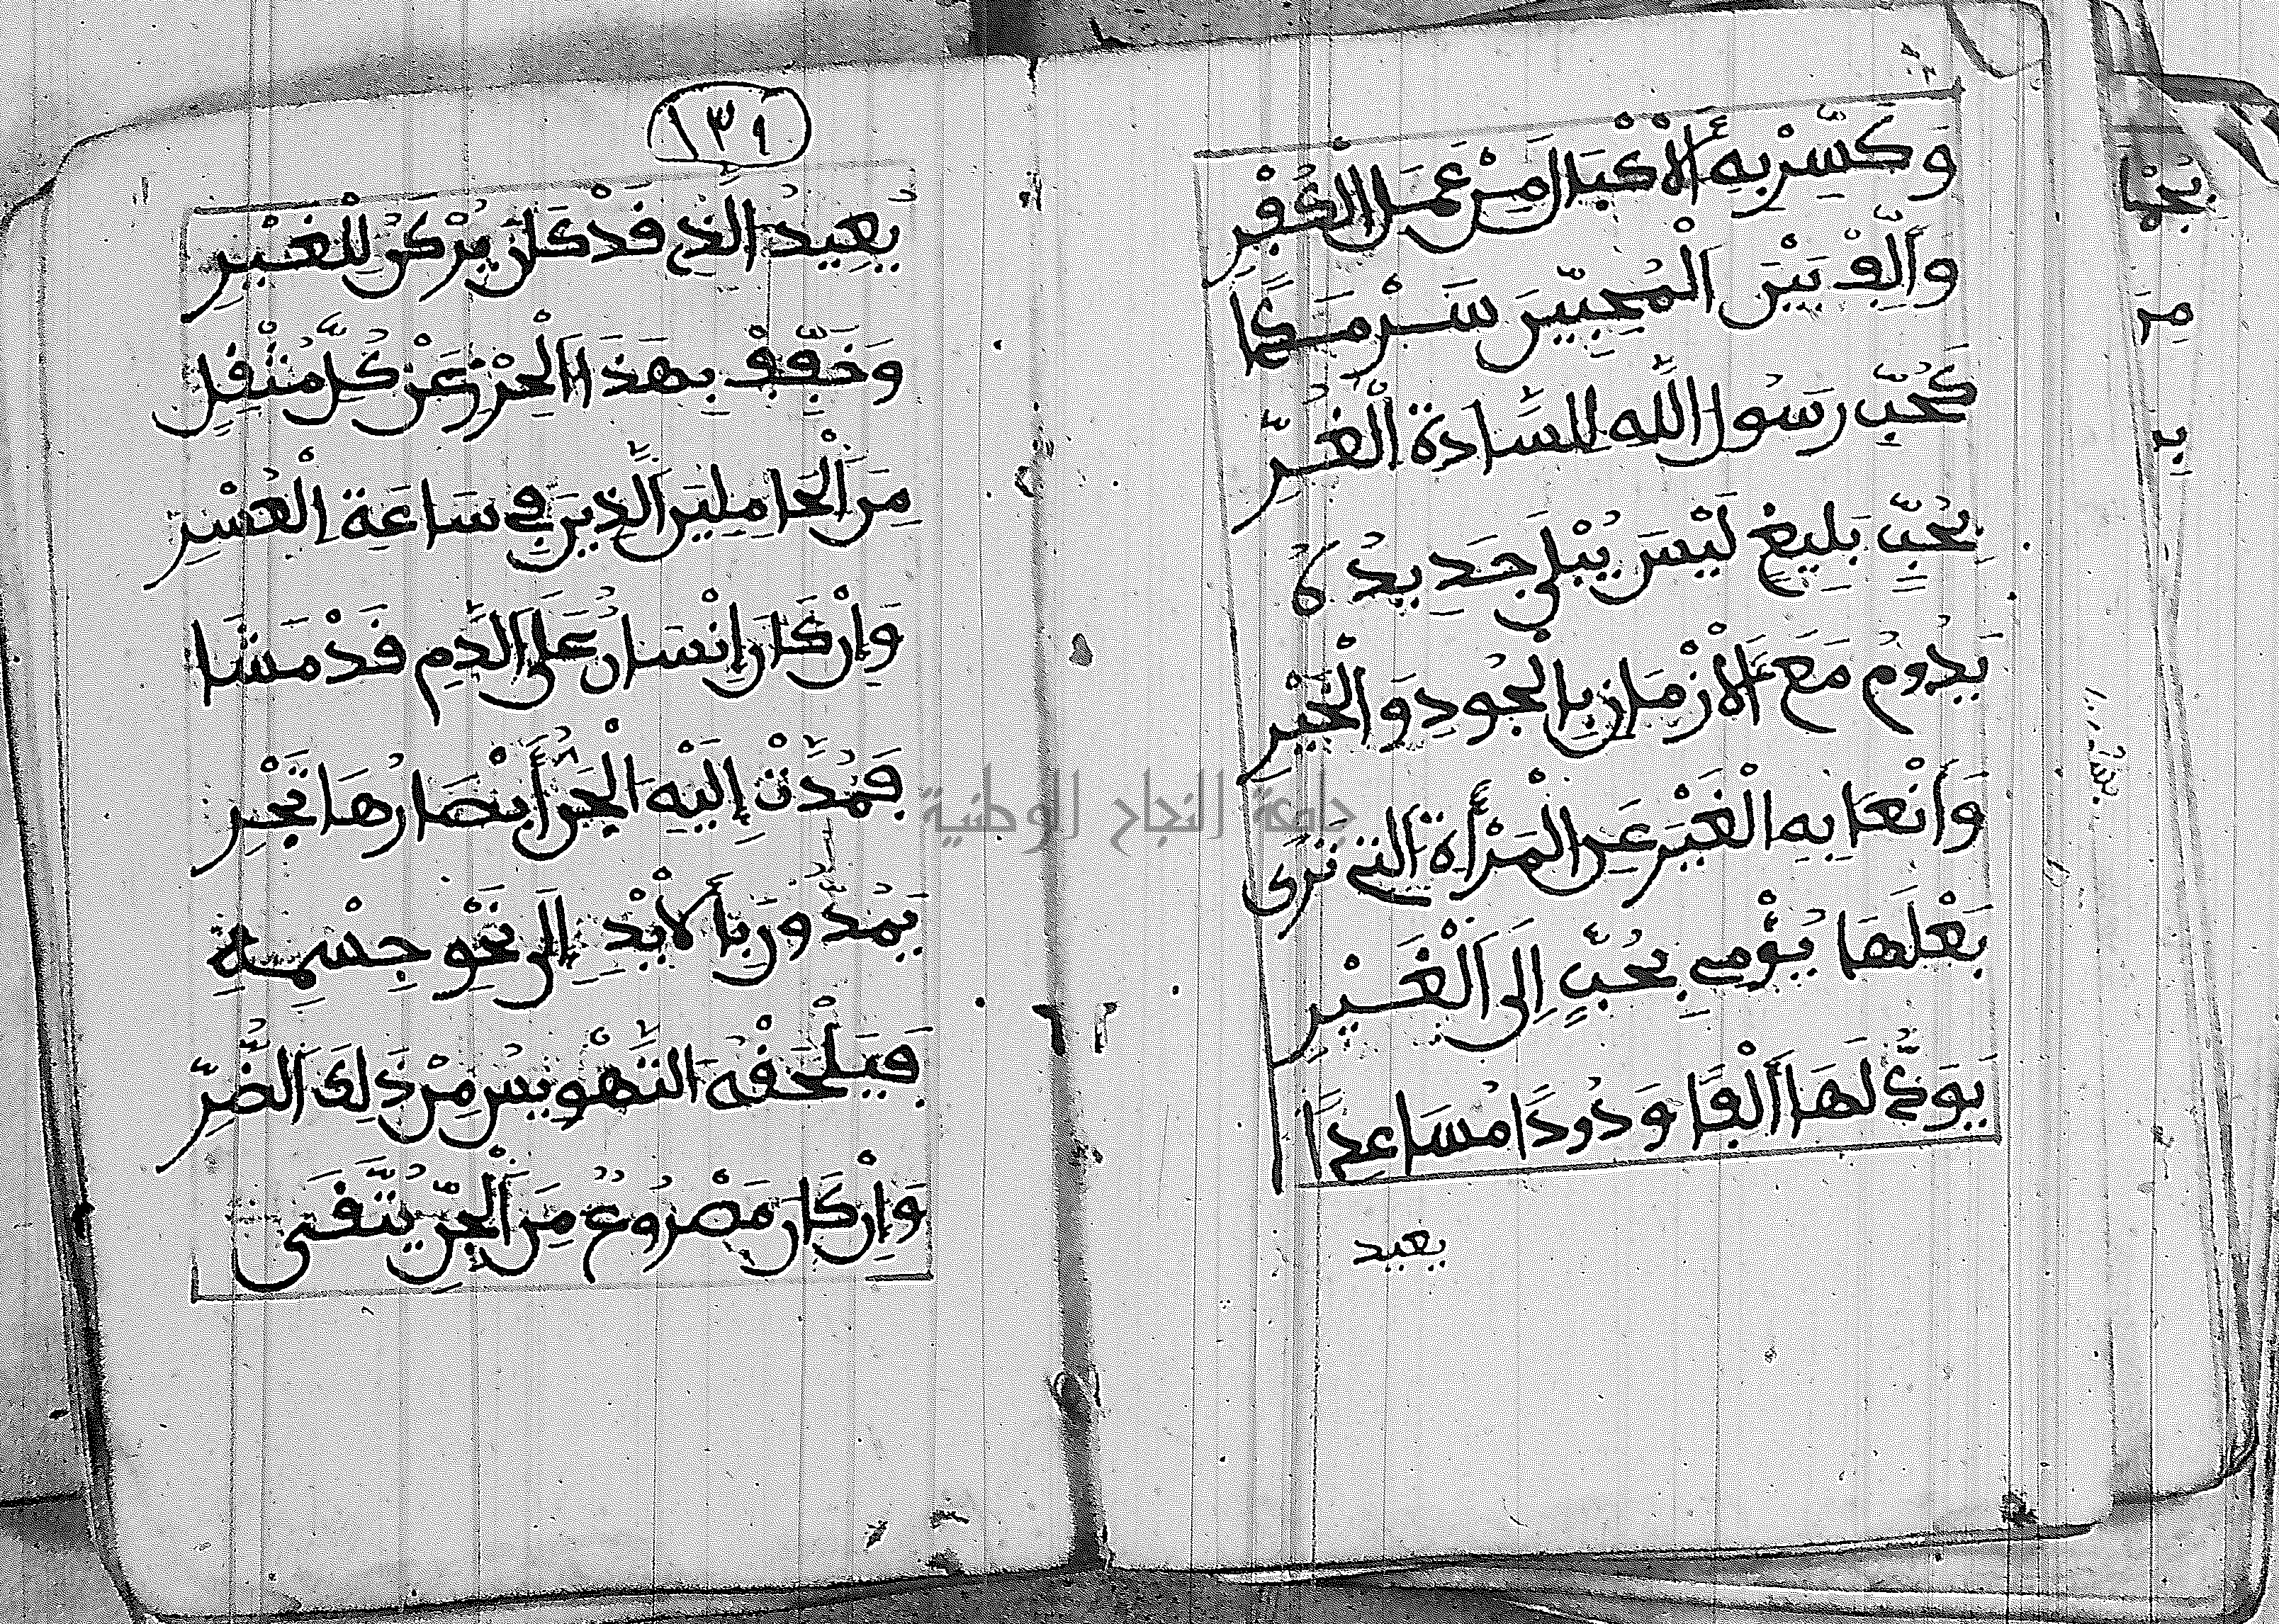 وَكَسِّرْ بِهِ الْأَكْبَالَ مِنْ عَمَلِ الْكُفْرِ
وَأَلِّفْ بَيْنَ الْمُحِبِّينَ سَرْمَدًا
كَحُبِّ رَسُولِ اللَّهِ لِلسَّادَةِ الْغُرِّ
بِحُبٍّ بَلِيغٍ لَيْسَ يُبْلَى جَدِيدُهُ
يَدُومُ مَعَ الْأَزْمَانِ بِالْجُودِ وَالْخَيْرِ
الْغَيْرَ عَنِ الْمَرْأَةِ الَّتِي تَرَى
بَعْلَهَا يُؤْمِي بِحُبٍّ إِلَى الْغَيْرِ
يَوَدُّ لَهَا أَلْفًا وَدُودًا مُسَاعِدًا
يعيد
١٣١
يُعِيدُ الَّذِي قَدْ كَانَ يَرْكَنُ لِلْغَيْرِ
وَخَفِّفْ بِهَذَا الْحِرْزِ عَنْ كُلِّ مُثْقِلٍ
مِنَ الْحَامِلِينَ الَّذِينَ فِي سَاعَةِ الْعُسْرِ
وَإِنْ كَانَ إِنْسَانٌ عَلَى الدَّمِ قَدْ مَشَا
فَمُدَّتْ إِلَيْهِ الْجِنُّ أَبْصَارُهَا تَجْرِ
يَمُدُّونَ بِالْأَيْدِ إِلَى نَحْوِ جِسْمِهِ
فَيَلْحَقُهُ التَّهْوِيسُ مِنْ ذَلِكَ الضُّرِّ
وَإِنْ كَانَ مَصْرُوعٌ مِنَ الْجِنِّ يُتَّقَى
بحها
مِنَ
جامعة النجاح الوطنية